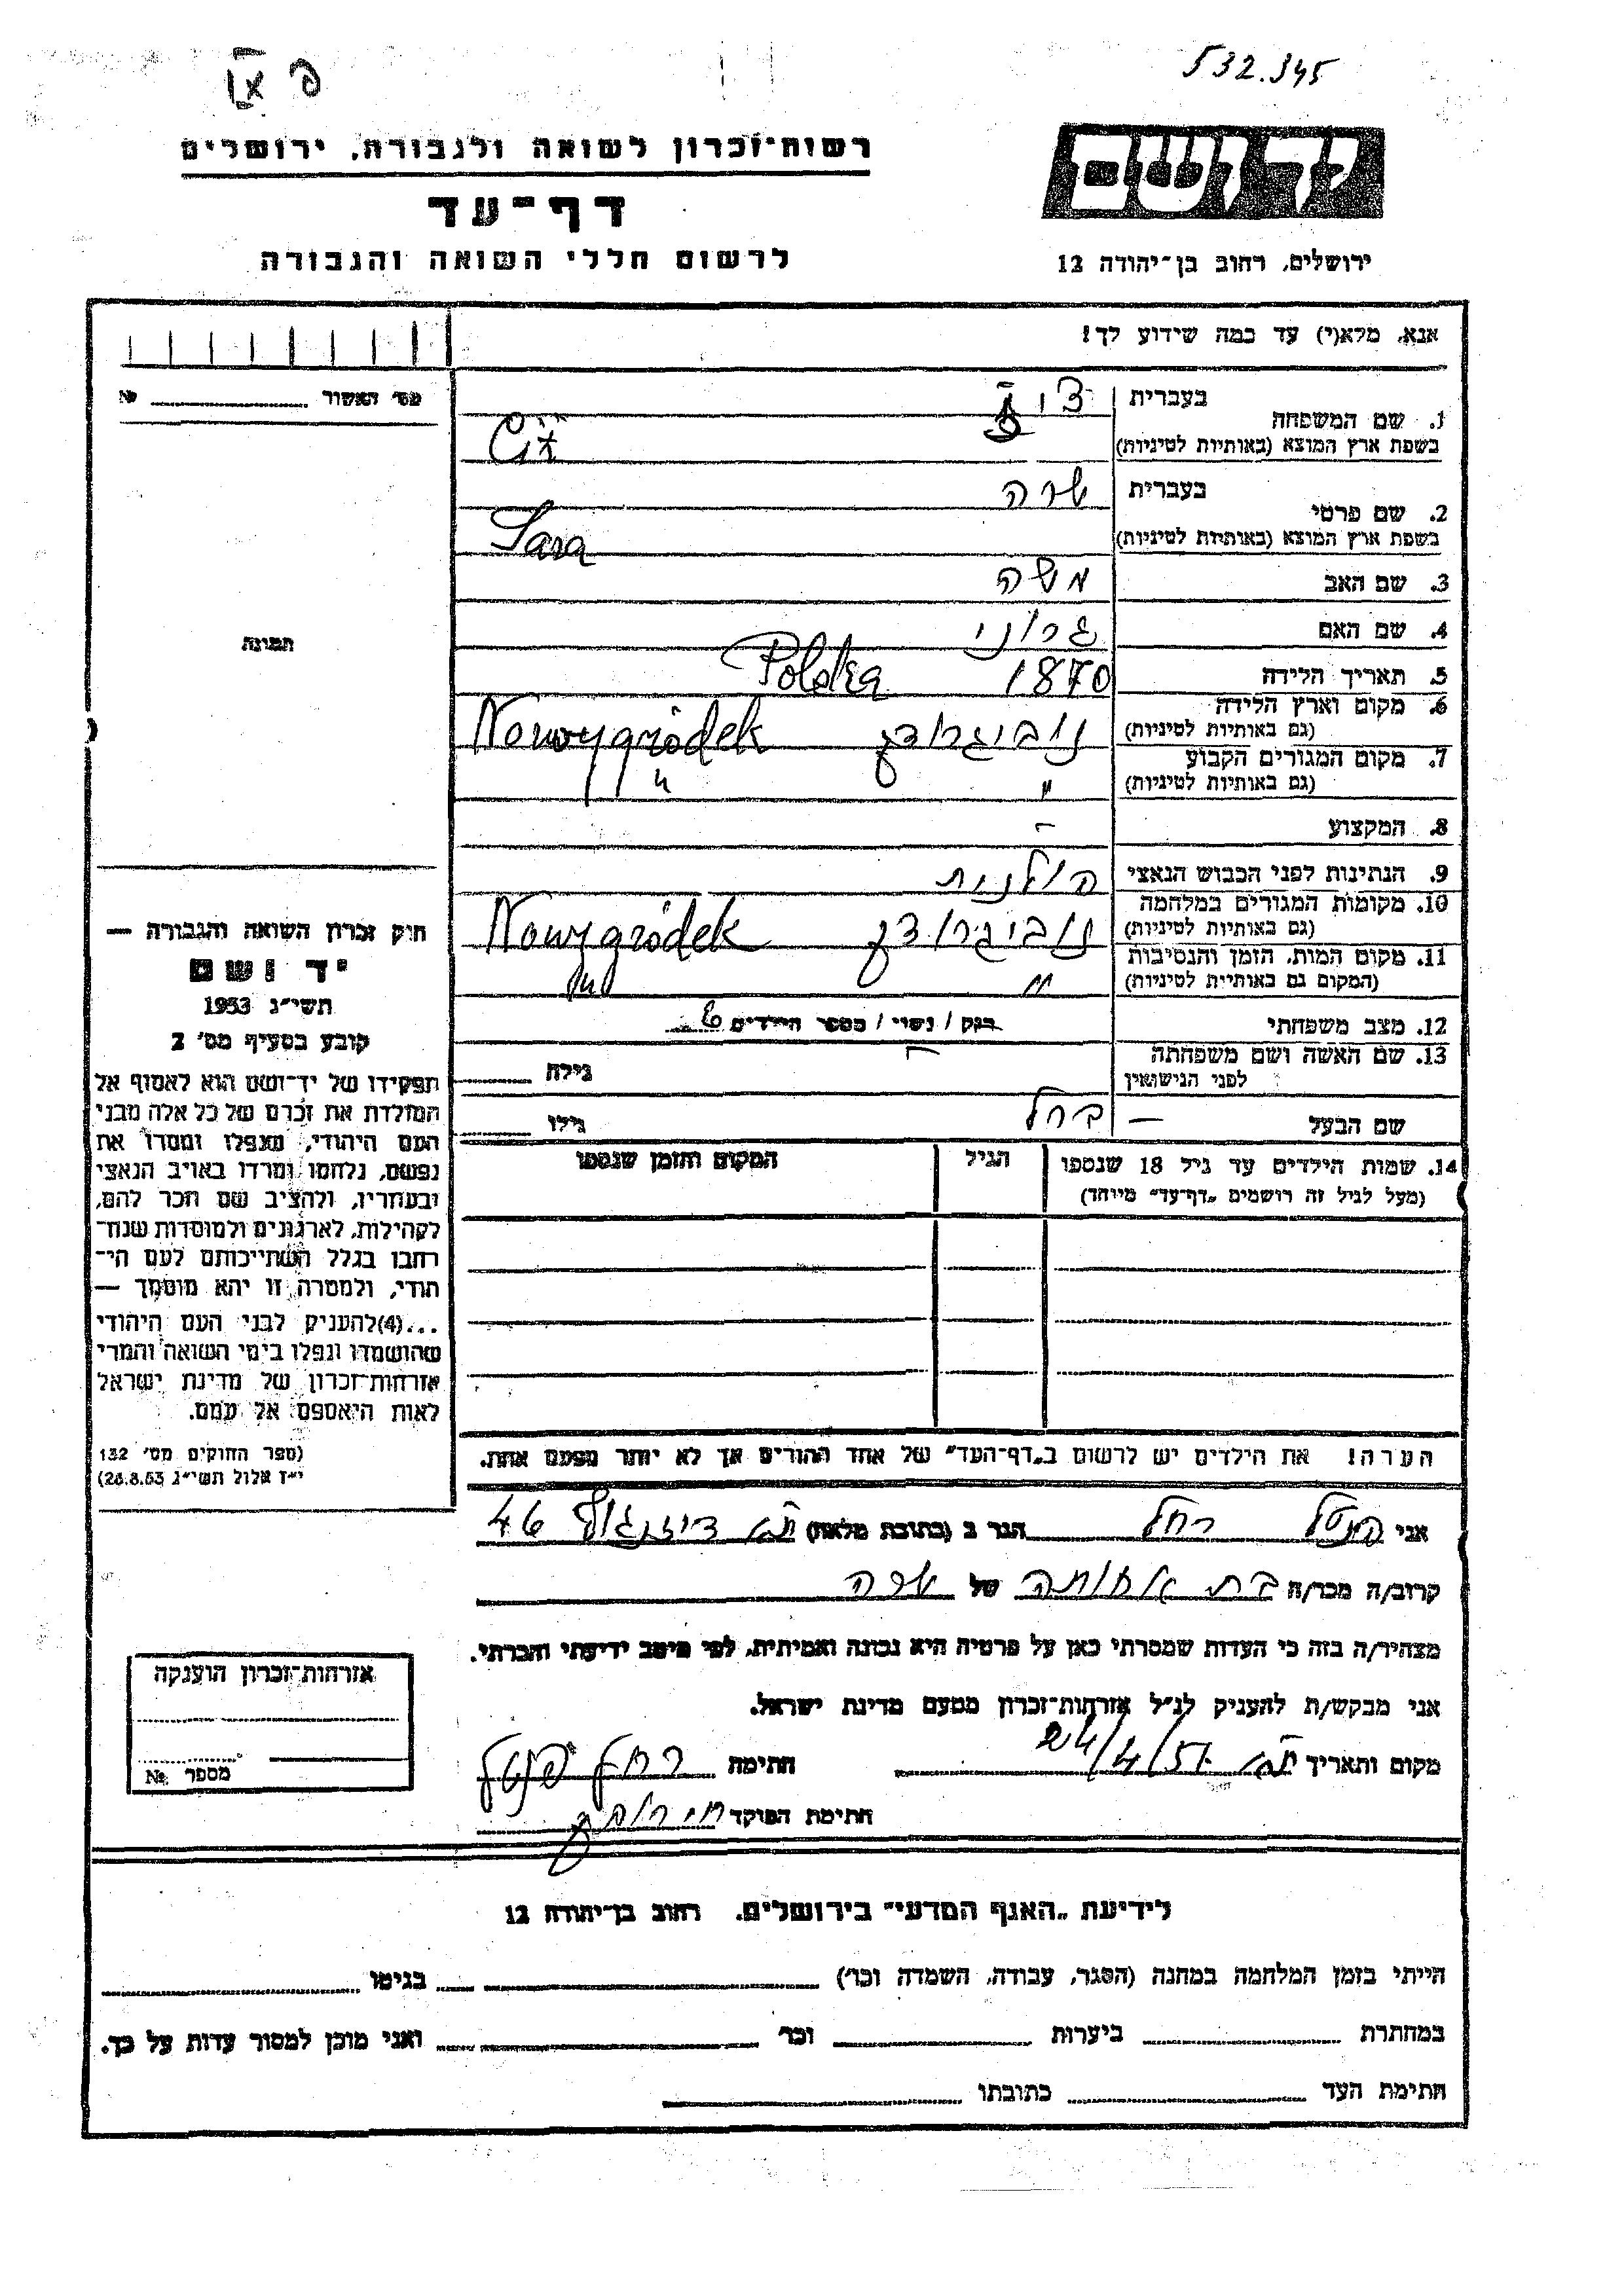 532.345
רשות־זכרון לשואה ולגבורה, ירושלים
יד ושם
דף־עד
לרשום חללי השואה והגבורה
ירושלים, רחוב בן־יהודה 12
אנא, מלא(י) עד כמה שידוע לך!
מס' האשור № 
בעברית
1. שם המשפחה
בשפת ארץ המוצא (באותיות לטיניות)
בעברית שרה
2. שם פרטי
בשפת ארץ המוצא (באותיות לטיניות) Sara
3. שם האב משה
4. שם האם
5. תאריך הלידה 1870 Polska
6. מקום וארץ הלידה
(גם באותיות לטיניות) נוביגרודק Nowygródek
7. מקום המגורים הקבוע
(גם באותיות לטיניות) " "
8. המקצוע -
9. הנתינות לפני הכבוש הנאצי פולנית
10. מקומות המגורים במלחמה
(גם באותיות לטיניות) נוביגרודק Nowygródek
11. מקום המות, הזמן והנסיבות
(המקום גם באותיית לטיניות) " "
12. מצב משפחתי רוק / נשוי / מספר הילדים 6
13. שם האשה ושם משפחתה
לפני הנישואין - גילה
שם הבעל — ברל גילו
14. שמות הילדים עד גיל 18 שנספו הגיל המקום והזמן שנספו
(מעל לגיל זה רושמים „דף־עד" מיוחד)
תמונה
חוק זכרון השואה והגבורה —
יד ושם
תשי"ג 1953
קובע בסעיף מס' 2
תפקידו של יד־ושם הוא לאסוף אל
המולדת את זכרם של כל אלה מבני
העם היהודי, שנפלו ומסרו את
נפשם, נלחמו ומרדו באויב הנאצי
ובעוזריו, ולהציב שם וזכר להם,
לקהילות, לארגונים ולמוסדות שנח־
רבו בגלל השתייכותם לעם הי־
הודי, ולמטרה זו יהא מוסמך —
...(4) להעניק לבני העם היהודי
שהושמדו ונפלו בימי השואה והמרי
אזרחות־זכרון של מדינת ישראל
לאות היאספם אל עמם.
(ספר החוקים מס' 132
י"ז אלול תשי"ג 28.8.53)
הערה! את הילדים יש לרשום ב„דף־העד" של אחד ההורים אך לא יותר מפעם אחת.
אני רחל הגר ב (כתובת מלאה) ת"א דיזנגוף 46
קרוב/ה מכר/ה בת אחותה של שרה
מצהיר/ה בזה כי העדות שמסרתי כאן על פרטיה היא נכונה ואמיתית, לפי מיטב ידיעתי והכרתי.
אני מבקש/ת להעניק לנ"ל אזרחות־זכרון מטעם מדינת ישראל.
מקום ותאריך ת"א חתימה רחל
חתימת הפוקד
אזרחות־זכרון הוענקה
מספר №
לידיעת „האגף המדעי" בירושלים. רחוב בן־יהודה 12
הייתי בזמן המלחמה במחנה (הסגר, עבודה, השמדה וכו') בגיטו
במחתרת ביערות וכו' ואני מוכן למסור עדות על כך.
חתימת העד כתובתו